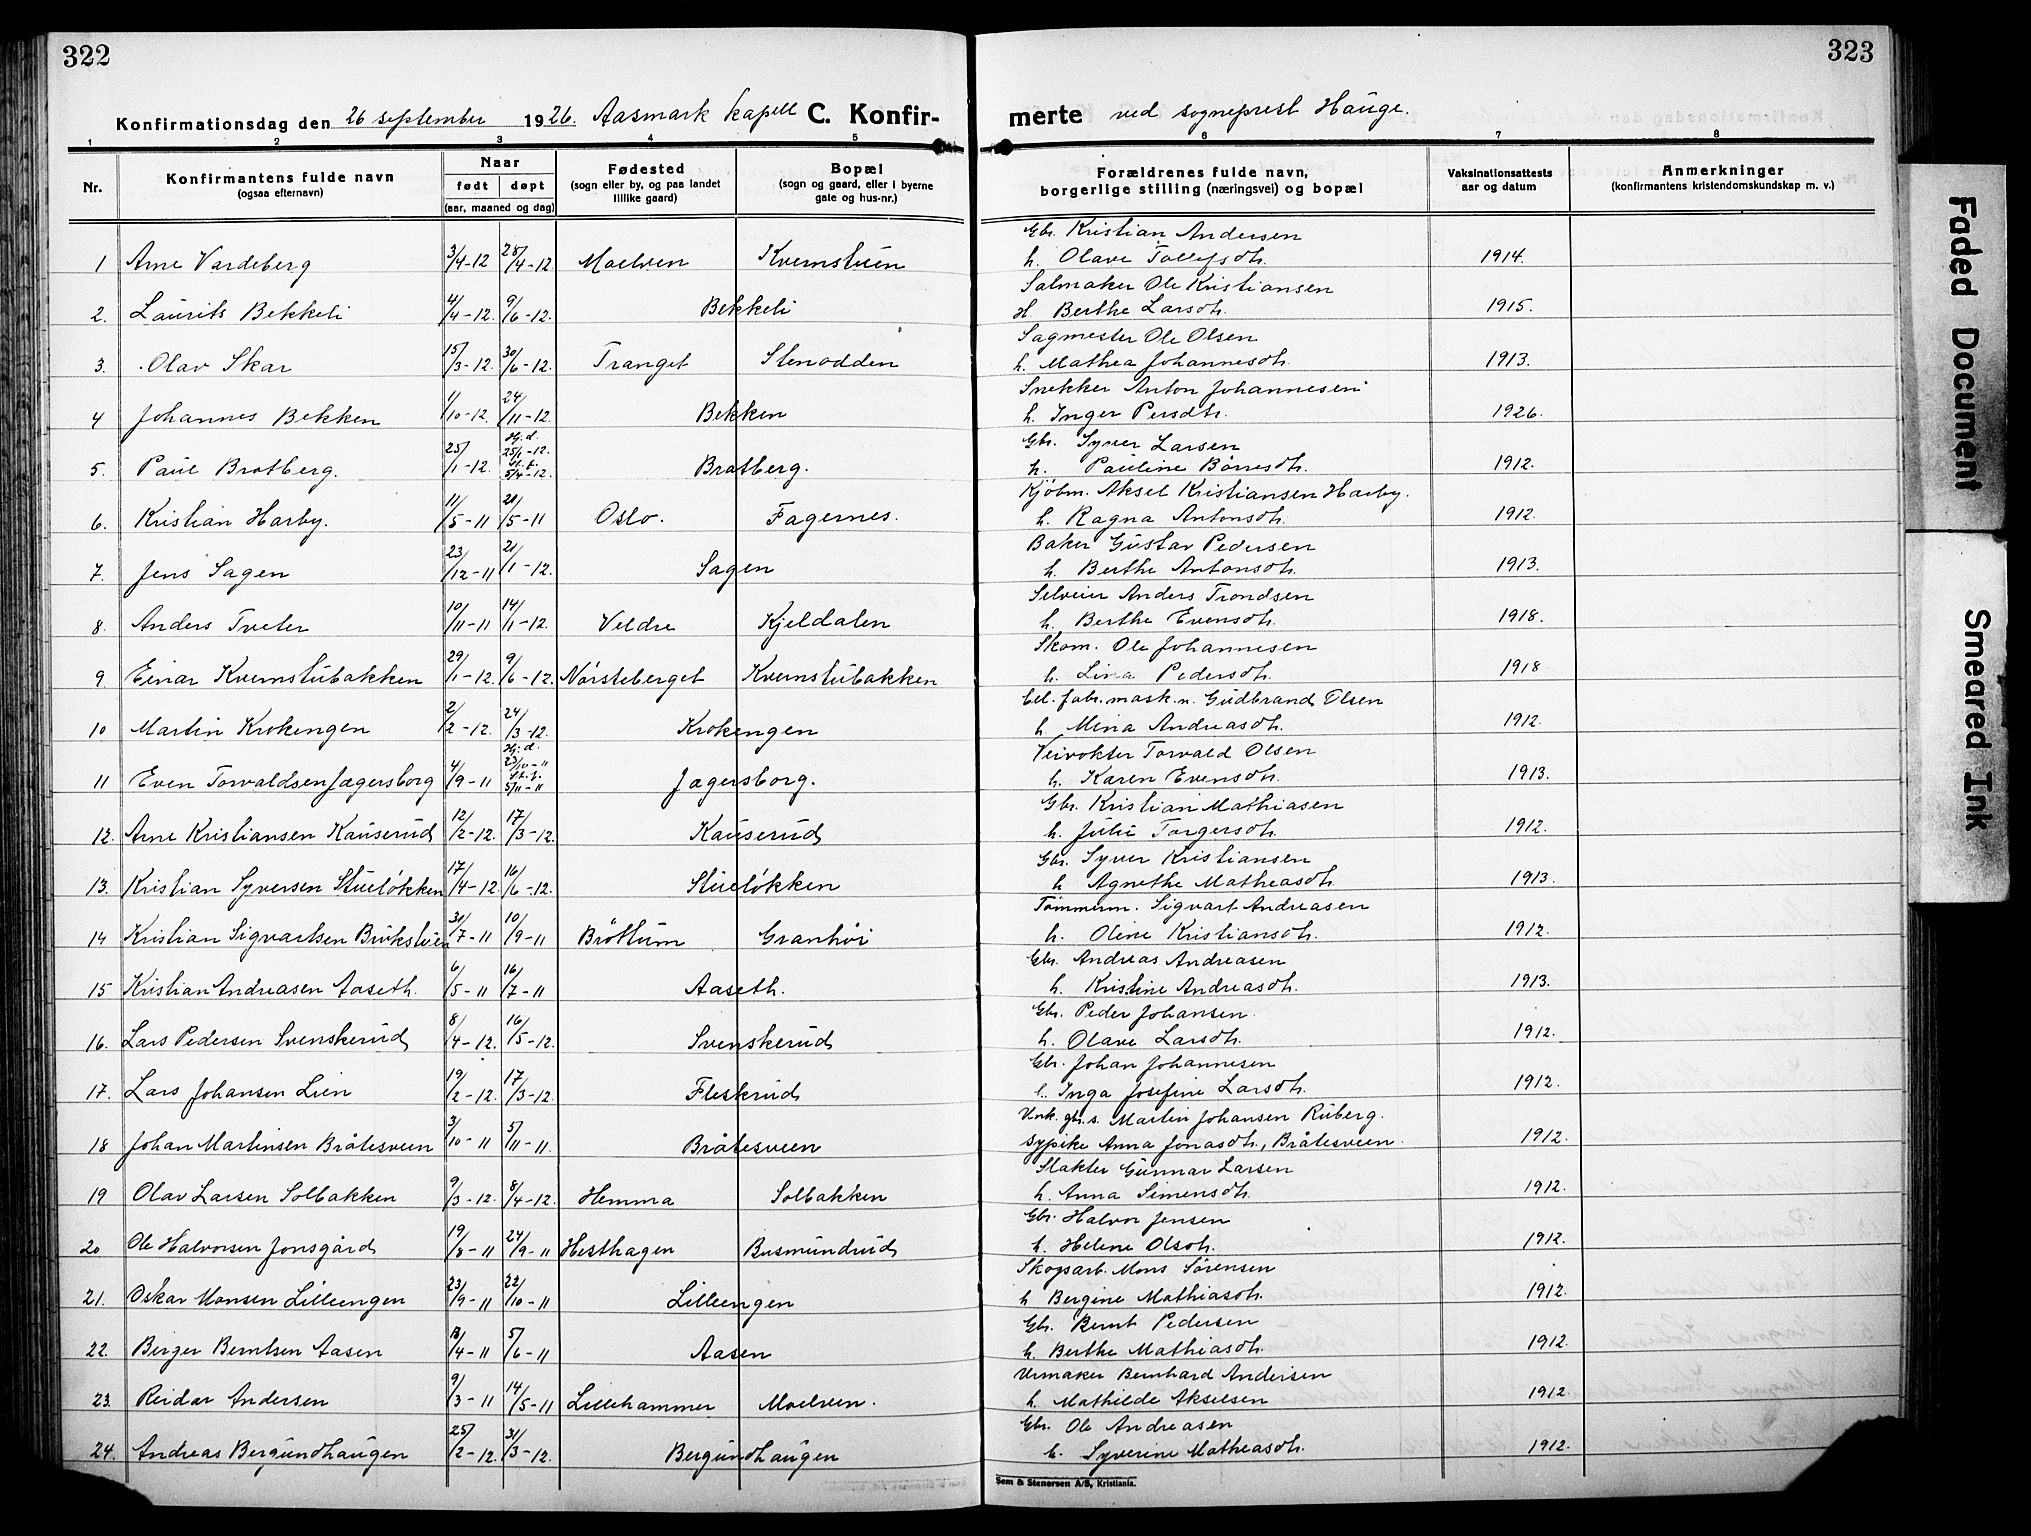 322
323
Konfirmationsdag den 26 september 1926. Aasmark kapell C. Konfir-
merte ved sogneprest Hauge.
1 2 3 4 5 6 7 8
Nr. Konfirmantens fulde navn (ogsaa efternavn) Naar født døpt (aar, maaned og dag) Fødested (sogn eller by, og paa landet tillike gaard) Bopæl (sogn og gaard, eller i byerne gate og hus-nr.) Forældrenes fulde navn, borgerlige stilling (næringsvei) og bopæl Vaksinationsattests aar og datum Anmerkninger (konfirmantens kristendomskundskap m. v.)
Gbr. Kristian Andersen
1 Arne Vardeberg 3/4-12 28/4-12 Moelven Kvernstuen h. Olave Tollefsdtr. 1914.
Salmaker Ole Kristiansen
2. Laurits Bekkeli 4/4-12. 9/6-12. Bekkeli H Berthe Larsdtr. 1915.
Sagmester Ole Olsen
3. Olav Skar 15/3-12. 30/6-12. Tranget Stenodden h. Mathea Johannesdtr. 1913.
Snekker Anton Johannesen
4 Johannes Bekken 11/10-12. 24/11-12. Bekken h. Inger Persdtr. 1926.
Gbr. Syver Larsen
5. Paul Bratberg. 25/1-12. Hj. d. 25/1-12. st. f. 5/4-12. Bratberg. h. Pauline Børresdtr. 1912.
Kjøbm. Aksel Kristiansen Harby.
6. Kristian Harby. 11/5-11 21/5-11 Oslo. Fagernes. h. Ragna Antonsdtr. 1912.
Baker Gustav Pedersen
7. Jens Sagen 23/12-11 21/1-12. Sagen h. Berthe Antonsdtr. 1913.
Selveier Anders Trondsen
8. Anders Tveter 10/11-11 14/1-12. Veldre Kjeldalen h. Berthe Evensdtr. 1918.
Skom. Ole Johannesen
9. Einar Kvernstubakken 29/1-12. 9/6-12. Nørsteberget Kvernstubakken h. Lina Pedersdtr. 1918
Cel. fabr. mask. n. Gudbrand Olsen
10 Martin Krokengen 2/2-12. 24/3-12. Krokengen h. Mina Andreasdtr. 1912.
Veivokter Torvald Olsen
11 Even Torvaldsen Jægersborg 4/9-11 Hj. d. 23/10-11 st. f. 5/11-11 Jægersborg. h. Karen Evensdtr. 1913.
Gbr. Kristian Mathiasen
12. Arne Kristiansen Kauserud 12/2-12. 17/3-12. Kauserud h. Julie Torgersdtr. 1912.
Gbr. Syver Kristiansen
13. Kristian Syversen Stueløkken 17/4-12. 16/6-12. Stueløkken h Agnethe Matheasdtr. 1913.
Tømmerm. Sigvart Andreasen
14 Kristian Sigvartsen Brukstuen 31/7-11 10/9-11 Brøttum Granhøi h. Oline Kristiansdtr. 1912.
Gbr. Andreas Andreasen
15 Kristian Andreasen Aaseth. 6/5-11 16/7-11 Aaseth. h. Kristine Andreasdtr. 1913.
Gbr. Peder Johansen.
16. Lars Pedersen Svenskerud 8/4-12. 16/5-12. Svenskerud h. Olave Larsdtr. 1912.
Gbr. Johan Johannesen
17. Lars Johansen Lien 19/2-12. 17/3-12. Fleskrud h. Inga Josefine Larsdtr. 1912.
Unk. gbr. s. Martin Johansen Ruberg.
18 Johan Martinsen Bråtesveen 3/10-11 5/11-11. Bråtesveen sypike Anna Jonasdtr., Bråtesveen. 1912.
Slakter Gunnar Larsen
19 Olav Larsen Solbakken 9/3-12. 8/4-12. Hemma Solbakken h. Anna Simensdtr. 1912.
Gbr. Halvor Jensen
20 Ole Halvorsen Jonsgård 19/8-11 24/9-11 Hesthagen Busmundrud h. Helene Olsdtr. 1912.
Skogsarb. Mons Sørensen
21. Oskar Monsen Lilleengen 23/9-11 22/10-11 Lilleengen h Bergine Mathiasdtr. 1912.
Gbr. Bernt Pedersen
22. Birger Berntsen Aasen 13/4-11 5/6-11 Aasen h. Berthe Mathiasdtr. 1912.
Urmaker Bernhard Andersen
23. Reidar Andersen 9/3-11 14/5-11 Lillehammer Moelven. h. Mathilde Akselsen 1912.
Gbr. Ole Andreasen
24. Andreas Bergundhaugen 25/2-12. 31/3-12. Bergundhaugen h. Syverine Matheasdtr. 1912.
Sem & Stenersen A/S, Kristiania.
Faded Document
Smeared Ink